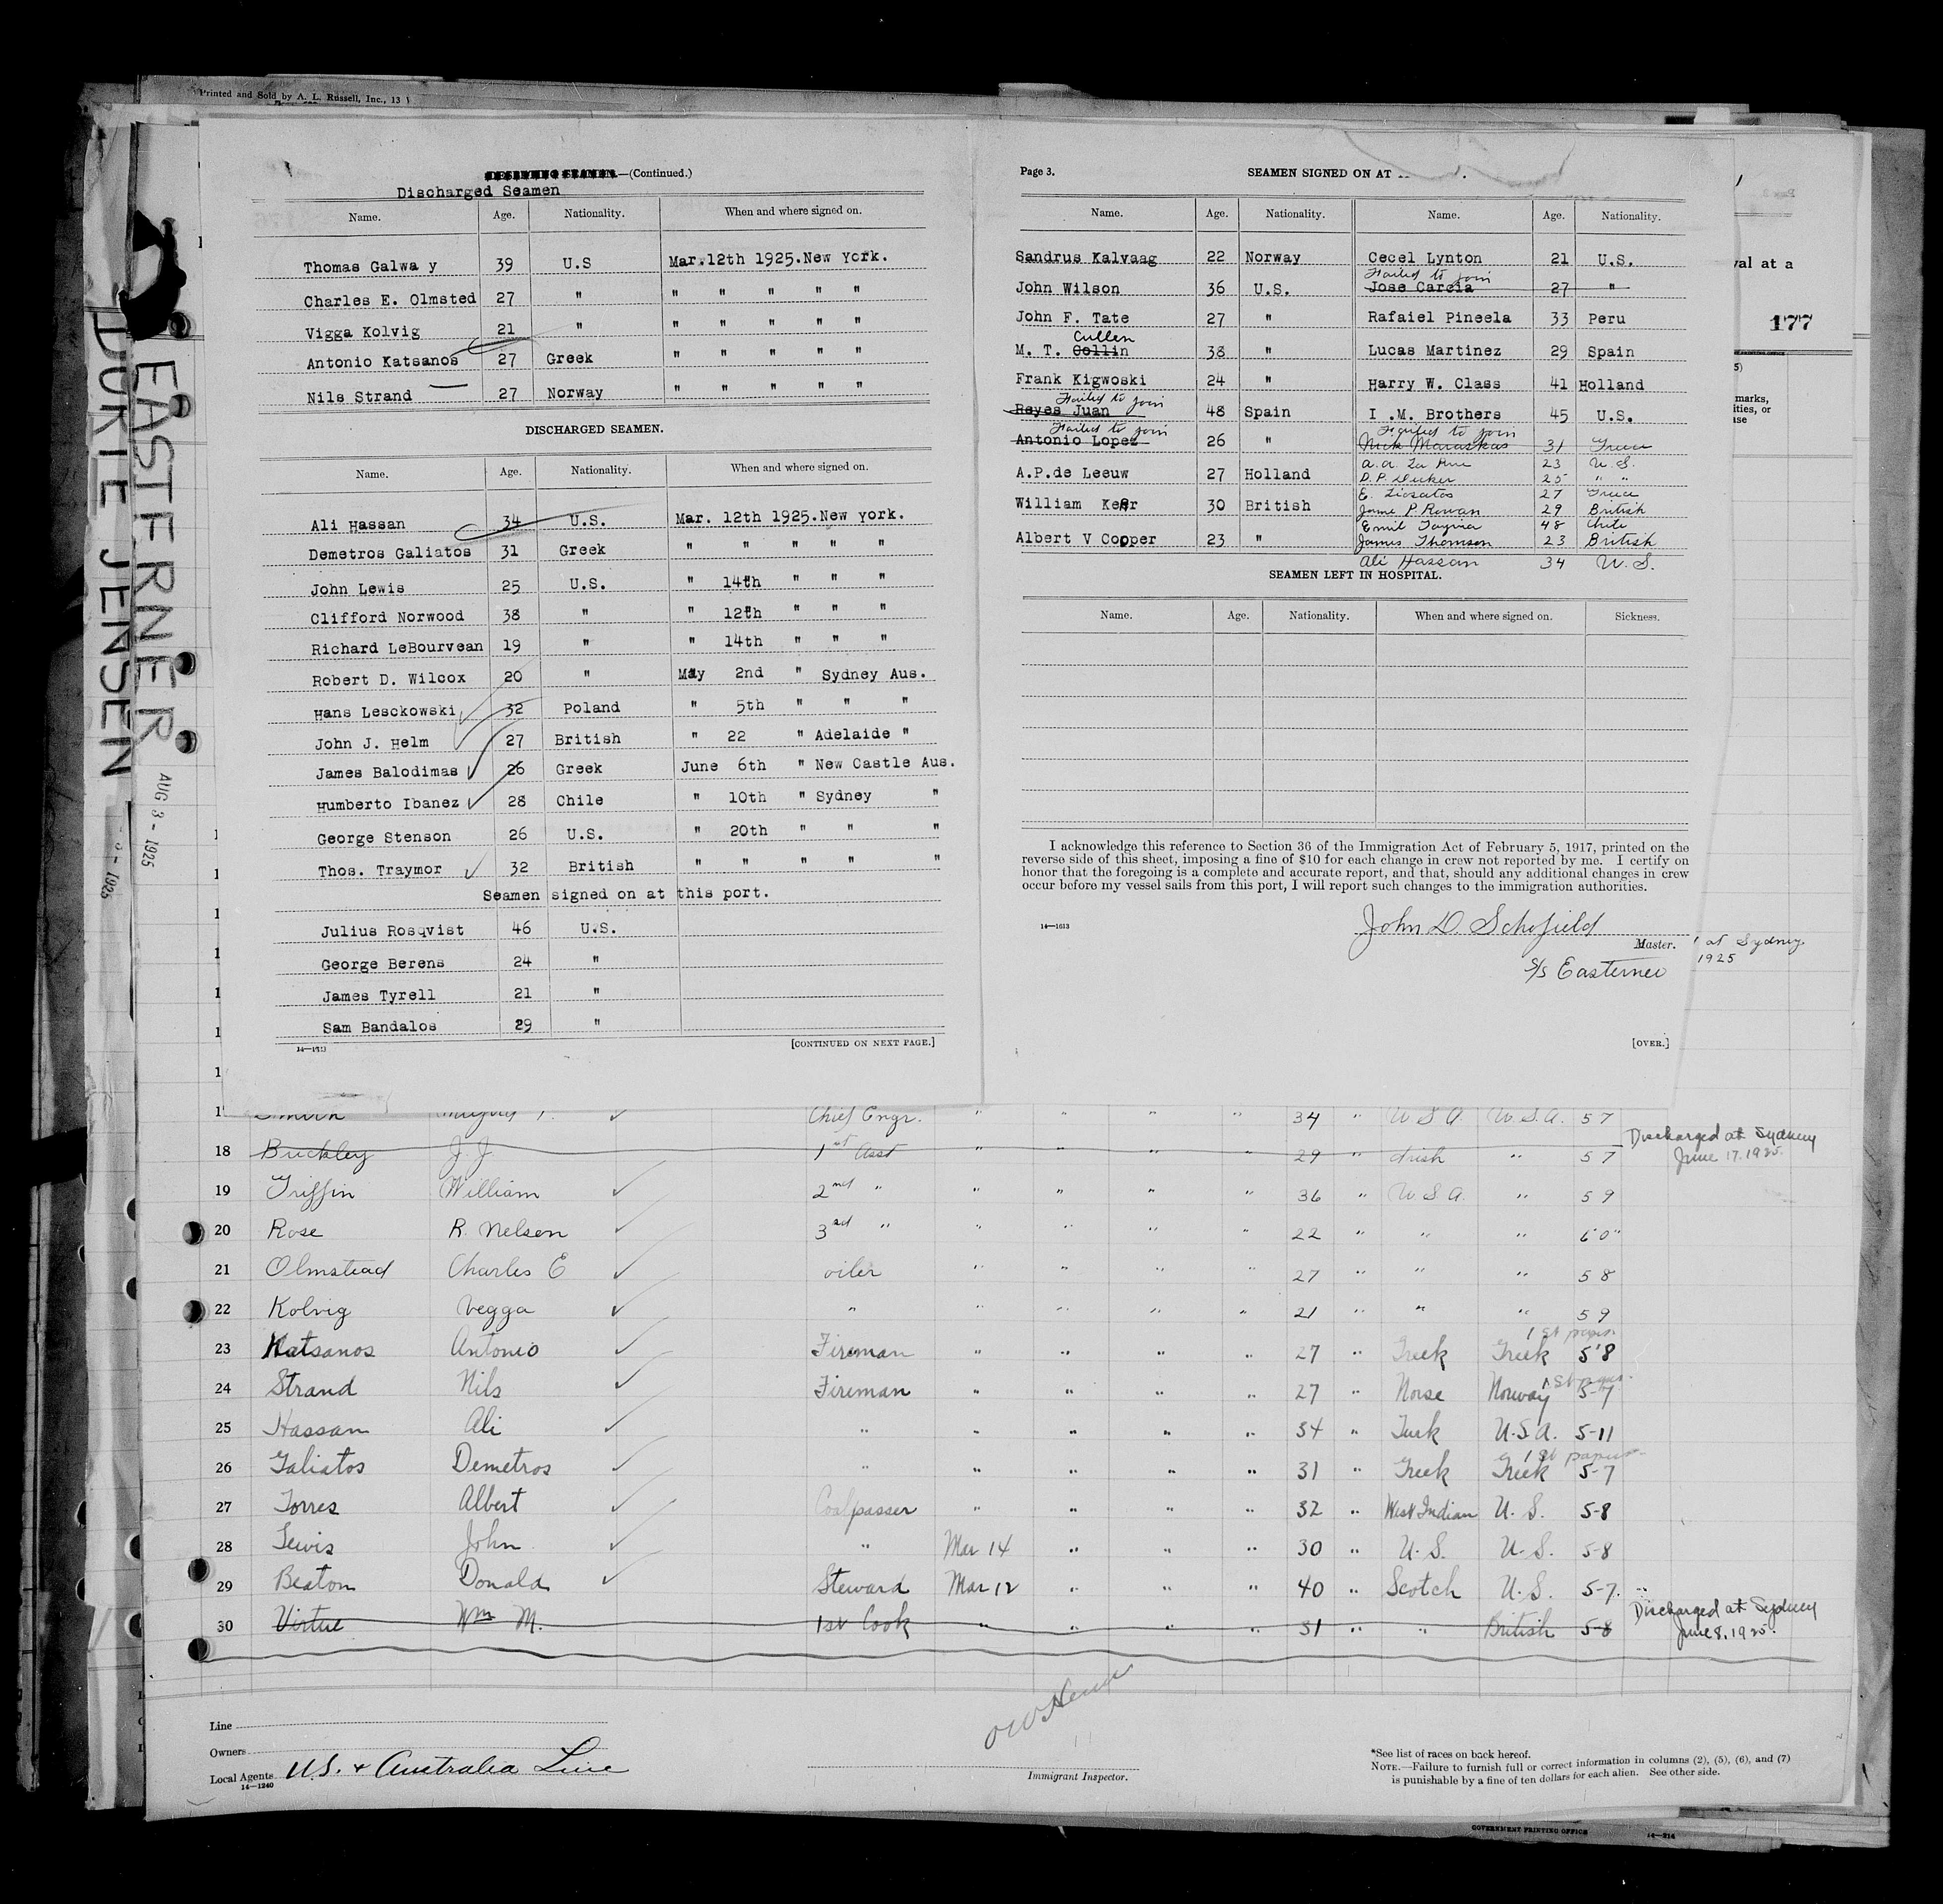 Printed and Sold by A. L. Russell, Inc., 13
EASTERNER
DURTE JENSEN
AUG 3 - 1925
- 1925
—(Continued.)
Discharged Seamen
Name. Age. Nationality. When and where signed on.
Thomas Galwa y 39 U.S Mar.12th 1925.New York.
Charles E. Olmsted 27 " " " " " "
Vigga Kolvig 21 " " " " " "
Antonio Katsanos 27 Greek " " " " "
Nils Strand 27 Norway " " " " "
DISCHARGED SEAMEN.
Name. Age. Nationality. When and where signed on.
Ali Hassan 34 U.S. Mar. 12th 1925.New York.
Demetros Galiatos 31 Greek " " " " "
John Lewis 25 U.S. " 14th " " "
Clifford Norwood 38 " " 12th " " "
Richard LeBourvean 19 " " 14th " " "
Robert D. Wilcox 20 " May 2nd " Sydney Aus.
Hans Lesckowski 32 Poland " 5th " " "
John J. Helm 27 British " 22 " Adelaide "
James Balodimas 26 Greek June 6th " New Castle Aus.
Humberto Ibanez 28 Chile " 10th " Sydney "
George Stenson 26 U.S. " 20th " " "
Thos. Traymor 32 British " " " " "
Seamen signed on at this port.
Julius Rosqvist 46 U.S.
George Berens 24 "
James Tyrell 21 "
Sam Bandalos 29 "
[CONTINUED ON NEXT PAGE.]
Page 3. SEAMEN SIGNED ON AT
Name. Age. Nationality. Name. Age. Nationality.
Sandrus Kalvaag 22 Norway Cecel Lynton 21 U.S.
Failed to join
John Wilson 36 U.S. Jose Carcia 27 "
John F. Tate 27 " Rafaiel Pineela 33 Peru
Cullen
M. T. Collin 38 " Lucas Martinez 29 Spain
Frank Kigwoski 24 " Harry W. Class 41 Holland
Failed to join
Reyes Juan 48 Spain I .M. Brothers 45 U.S.
Failed to join Failed to join
Antonio Lopez 26 " Nick Maraskas 31 Greece
A.P.de Leeuw 27 Holland A. A. La Rue 23 U.S.
D. P. Decker 25 " "
William Kerr 30 British E. Liosatos 27 Greece
Jame P Rowan 29 British
Emil Tayna 48 Chile
Albert V Cooper 23 " James Thomson 23 British
Ali Hassan 34 U.S.
SEAMEN LEFT IN HOSPITAL.
Name. Age. Nationality. When and where signed on. Sickness.
I acknowledge this reference to Section 36 of the Immigration Act of February 5, 1917, printed on the
reverse side of this sheet, imposing a fine of $10 for each change in crew not reported by me. I certify on
honor that the foregoing is a complete and accurate report, and that, should any additional changes in crew
occur before my vessel sails from this port, I will report such changes to the immigration authorities.
14—1613
John D. Schofield
Master.
S/S Easterner
[OVER.]
val at a
177
marks,
ities, or
ase
at Sydney
1925
Smith Chief Engr. " " " " 34 " U S A. U. S. A. 5 7
18 Buckley J. J. 1st Asst " " " " 29 " Irish " 5 7 Discharged at Sydney June 17. 1925.
19 Griffin William 2nd " " " " " 36 " U S A. " 5 9
20 Rose R. Nelson 3rd " " " " " 22 " " " 6'0"
21 Olmstead Charles E oiler " " " " 27 " " " 5 8
22 Kolvig Vegga " " " " " 21 " " " 5 9
1st papers
23 Katsanos Antonio Fireman " " " " 27 " Greek Greek 5'8
1st papers
24 Strand Nils Fireman " " " " 27 " Norse Norway 5-7
25 Hassan Ali " " " " " 34 " Turk U.S.A. 5-11
1st papers
26 Galiatos Demetros " " " " " 31 " Greek Greek 5-7
27 Torres Albert Coalpasser " " " " 32 " West Indian U. S. 5-8
28 Lewis John " Mar 14 " " " 30 " U. S. U. S. 5-8
29 Beaton Donald Steward Mar 12 " " " 40 " Scotch U. S. 5-7.
30 Virtue Wm M. 1st Cook " " " " 31 " " British 5-8 Discharged at Sydney June 8, 1925.
Line
Owners
Local Agents U.S. & Australia Line
14—1240
Immigrant Inspector.
*See list of races on back hereof.
NOTE.—Failure to furnish full or correct information in columns (2), (5), (6), and (7)
is punishable by a fine of ten dollars for each alien. See other side.
GOVERNMENT PRINTING OFFICE 14—214